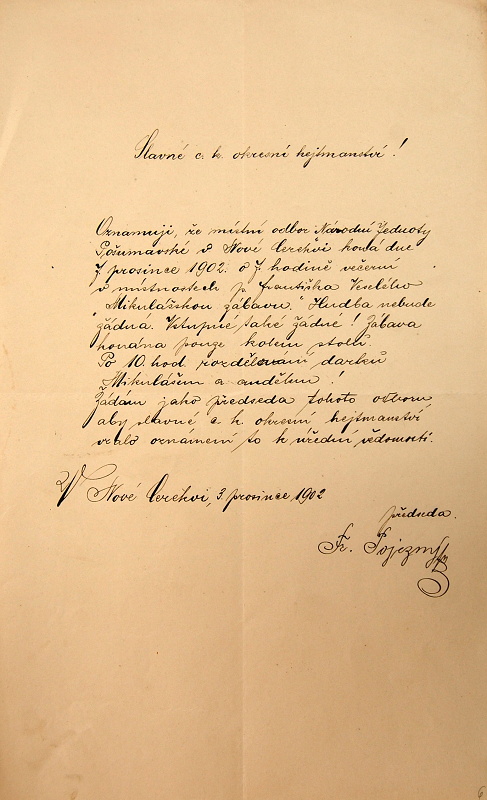 Slavné c. k. okresní hejtmanství!
Oznamuji, že místní odbor Národní Jednoty
Pošumavské v Nové Cerekvi koná dne
7. prosince 1902. o 7. hodině večerní
v místnostech p. Františka Veselého
„Mikulášskou zábavu." Hudba nebude
žádná. Vstupné také žádné! Zábava
konána pouze kolem stolů.
Po 10. hod. rozdělování dárků
Mikulášem a andělem!
Žádám jako předseda tohoto odboru,
aby slavné c. k. okresní hejtmanství
vzalo oznámení to k úřední vědomosti.
V Nové Cerekvi, 3. prosince, 1902
předseda.
Fr.